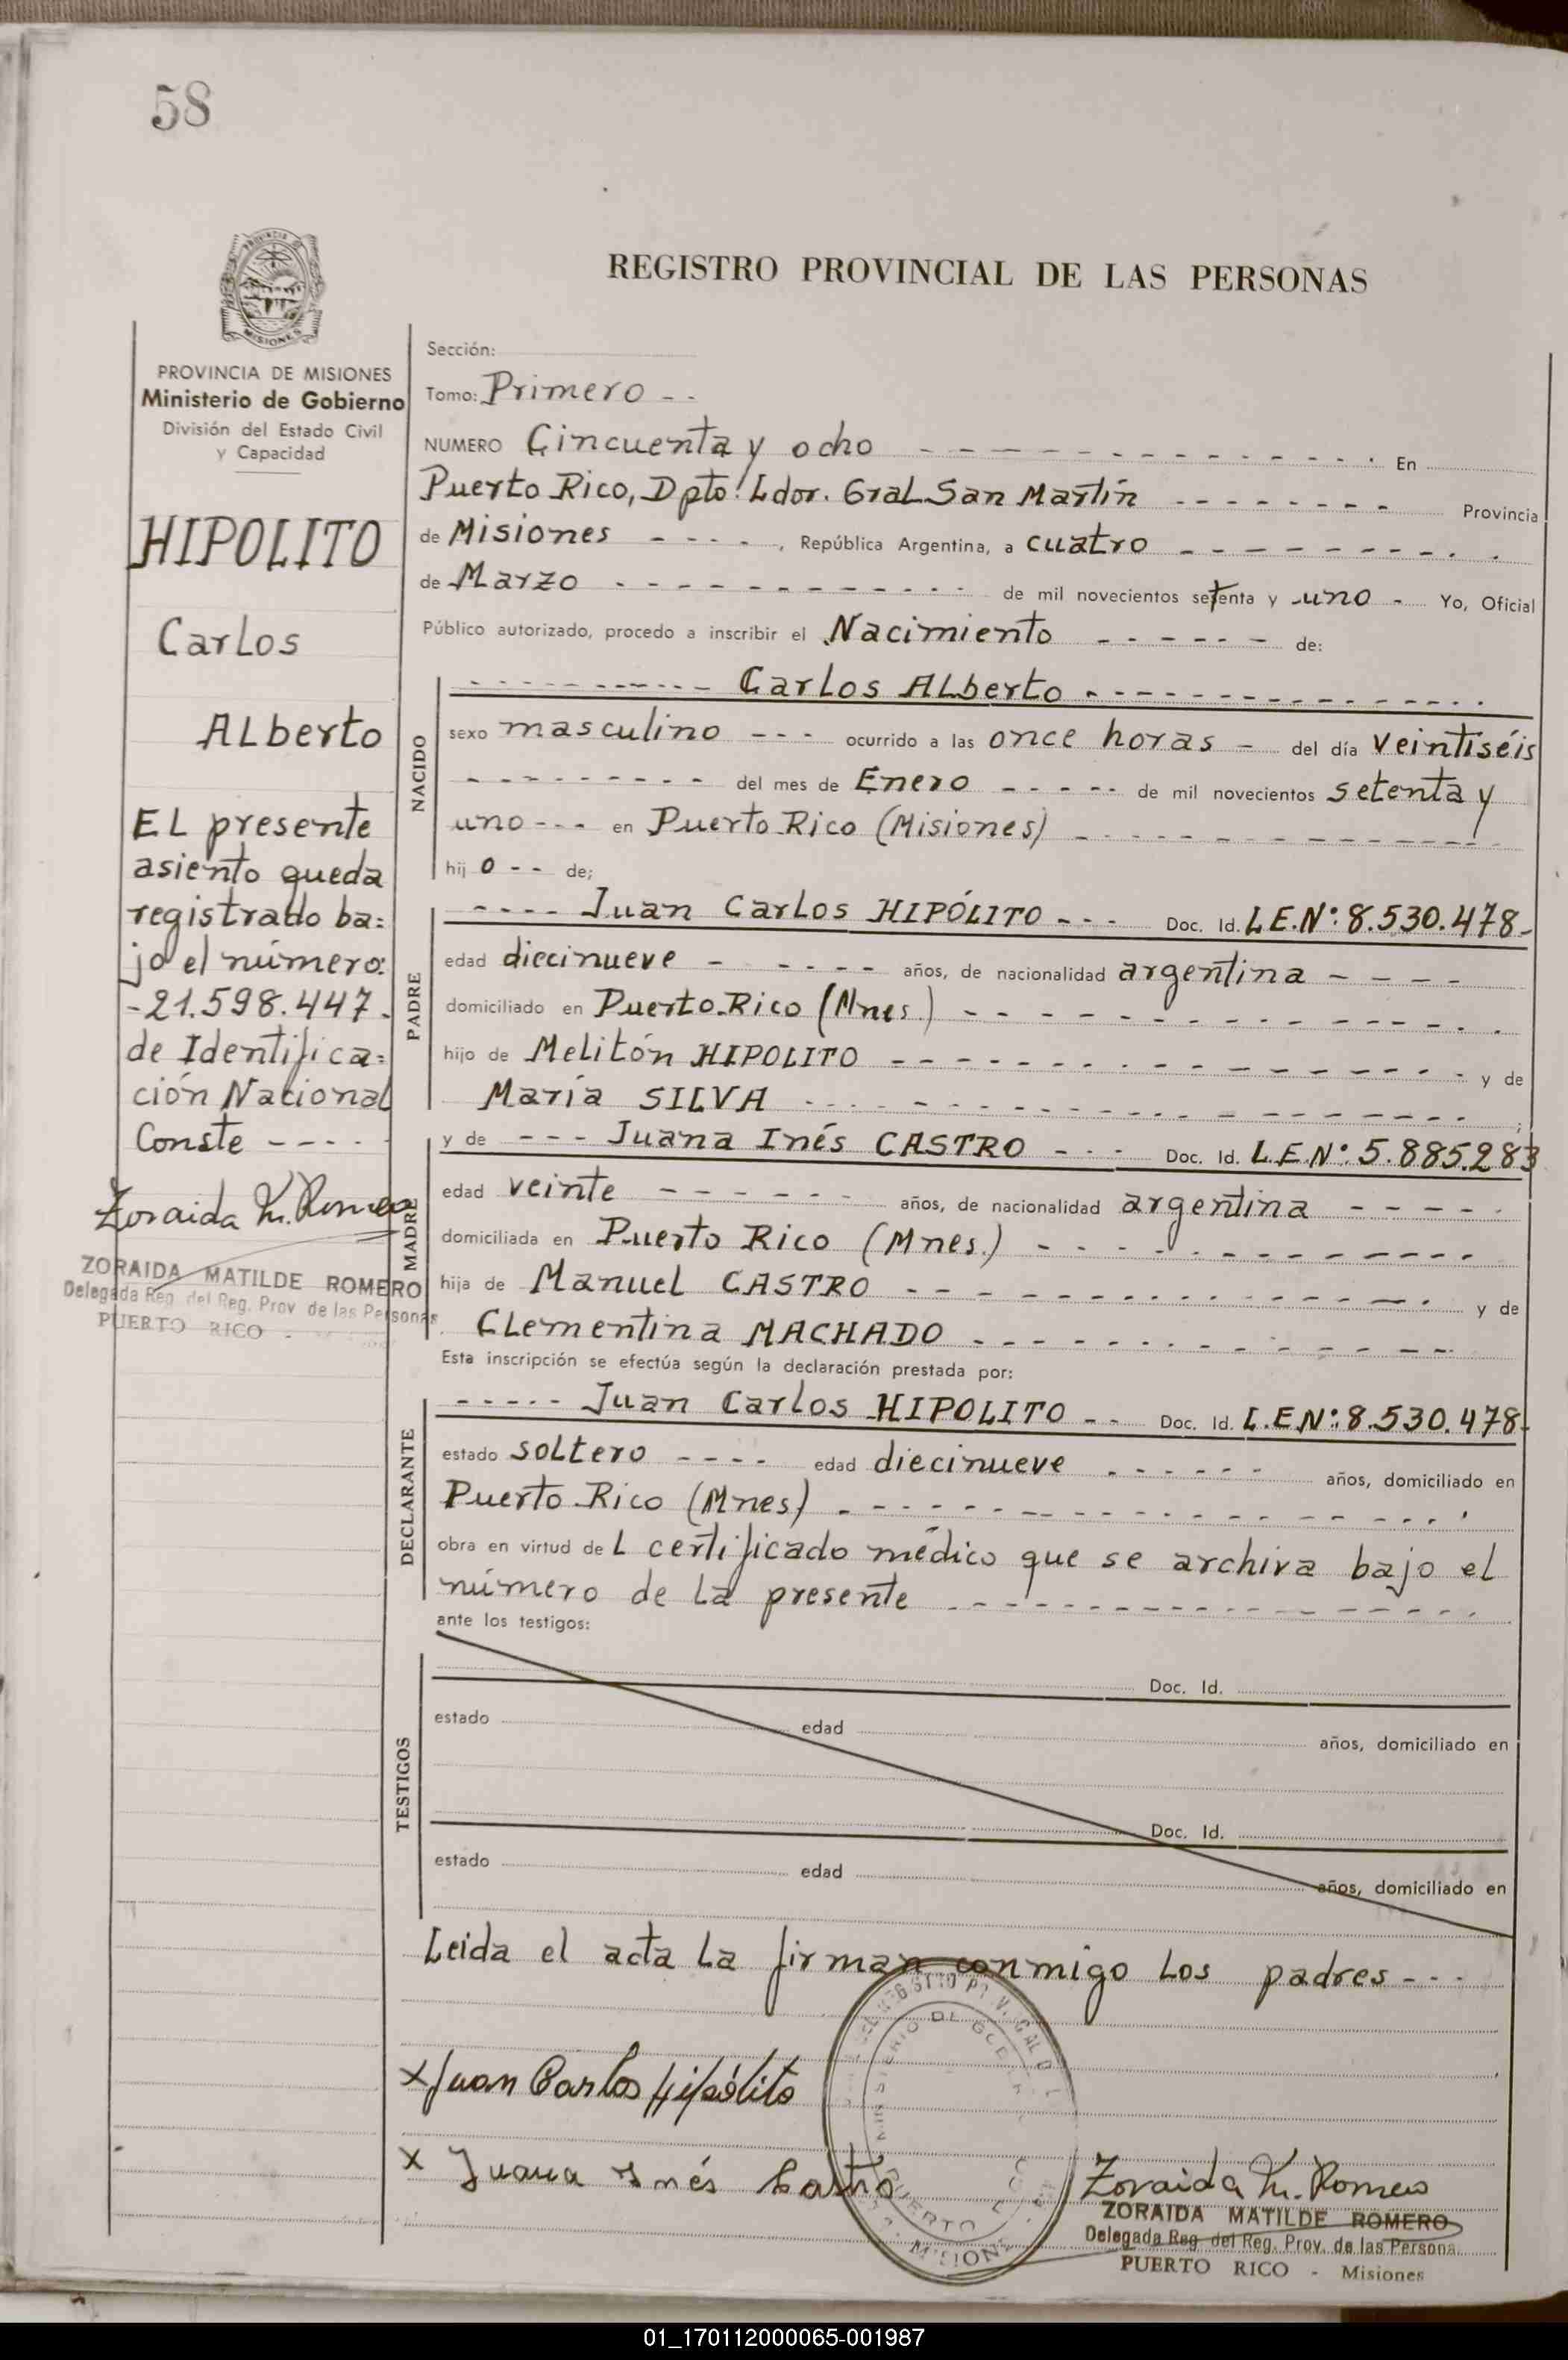 58
REGISTRO PROVINCIAL DE LAS PERSONAS
PROVINCIA DE MISIONES
Ministerio de Gobierno
División del Estado Civil
y Capacidad
HIPOLITO
Carlos
Alberto
EL presente
asiento queda
registrado ba=
jo el número:
-21.598.447-
de Identifica=
ción Nacional
Conste - - - -
Zoraida M. Romero
ZORAIDA MATILDE ROMERO
Delegada Reg. del Reg. Prov. de las Personas
PUERTO RICO -
Sección:
Tomo: Primero - -
NUMERO Cincuenta y ocho - - - - En
Puerto Rico, Dpto. Ldor. Gral San Martín - - - - Provincia
de Misiones - - - -, República Argentina, a cuatro - - - -
de Marzo - - - - de mil novecientos setenta y uno - Yo, Oficial
Público autorizado, procedo a inscribir el Nacimiento - - - - de:
NACIDO
- - - - Carlos Alberto - - - -
sexo masculino - - - ocurrido a las once horas - del día veintiséis
- - - - del mes de Enero - - - - de mil novecientos setenta y
uno - - - en Puerto Rico (Misiones) - - - -
hij o - - de;
PADRE
- - - - Juan Carlos HIPÓLITO - - - Doc. Id. L.E.Nº: 8.530.478-
edad diecinueve - - - - - años, de nacionalidad argentina - - - -
domiciliado en Puerto Rico (Mnes.) - - - -
hijo de Melitón HIPOLITO - - - - y de
María SILVA - - - - ;
MADRE
y de - - - Juana Inés CASTRO - - - Doc. Id. L.E.Nº: 5.885.283
edad veinte - - - - años, de nacionalidad argentina - - - -
domiciliada en Puerto Rico (Mnes.) - - - -
hija de Manuel CASTRO - - - - y de
Clementina MACHADO - - - -
Esta inscripción se efectúa según la declaración prestada por:
DECLARANTE
- - - - - Juan Carlos HIPOLITO - - Doc. Id. L.E.Nº: 8.530.478-
estado soltero - - - - edad diecinueve - - - - años, domiciliado en
Puerto Rico (Mnes) - - - -
obra en virtud de L certificado médico que se archiva bajo el
número de la presente - - - -
ante los testigos:
TESTIGOS
Doc. Id.
estado edad años, domiciliado en
Doc. Id.
estado edad años, domiciliado en
Leida el acta la firman conmigo los padres - - -
x Juan Carlos Hipólito
x Juana Inés Castro
MINISTERIO DE
PUERTO
MISIONES
Zoraida M. Romero
ZORAIDA MATILDE ROMERO
Delegada Reg. del Reg. Prov. de las Persona
PUERTO RICO - Misiones
01_170112000065-001987